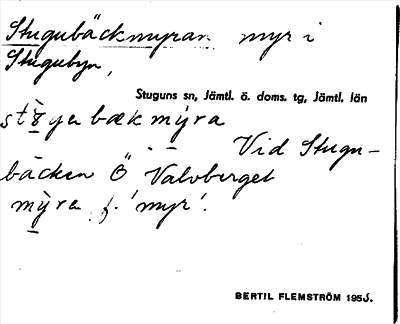 Stugubäckmyran myr i
Stugubyn,
Stuguns sn, Jämtl. ö. doms. tg, Jämtl. län
bækmýra
Vid Stugu-
bäcken Ö Valvberget
mỳra f. 'myr'.
BERTIL FLEMSTRÖM 1955.